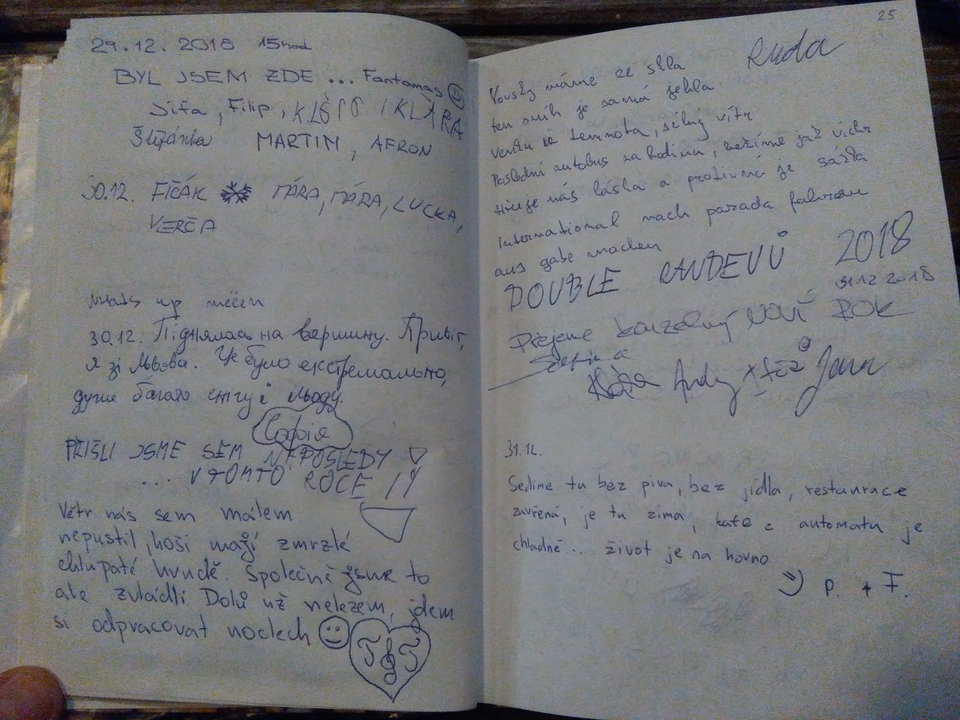 29.12. 2018 15hod
BYL JSEM ZDE ... Fantomas
Jiťa, Filip, KLÁRA
Štěpánka MARTIN, AFRON
30.12. FIČÁK MÁRA, MÁRA, LUCKA,
VERČA
Whats up
30.12. Піднялась на вершину. Привіт,
я зі Львова. Це було екстремально,
дуже багато снігу і льоду.
Софія
PŘIŠLI JSME SEM NAPOSLEDY
... V TOMTO ROCE !!
Vítr nás sem málem
nepustil, hoši mají zmrzlé
chlupaté hrudě. Společně jsme to
ale zvládli. Dolů už nelezem, jdem
si odpracovat nocleh
25
Ruda
Vousky máme ze skla
ten sníh je samá jehla
venku je Lemmota, silný vítr
Poslední autobus za hodinu, běžíme jak vichr
Hřeje nás láska a protivné je sazka
International mach parada fahren
aus gabe machen
DOUBLE RANDEVÚ 2018
31.12 2018
Přejeme kouzelný NOVÝ ROK
Andy Jana
31.12.
Sedíme tu bez piva, bez jídla, restaurace
zavřená, je tu zima, kafe z automatu je
chladné.. život je na hovno
P. + F.